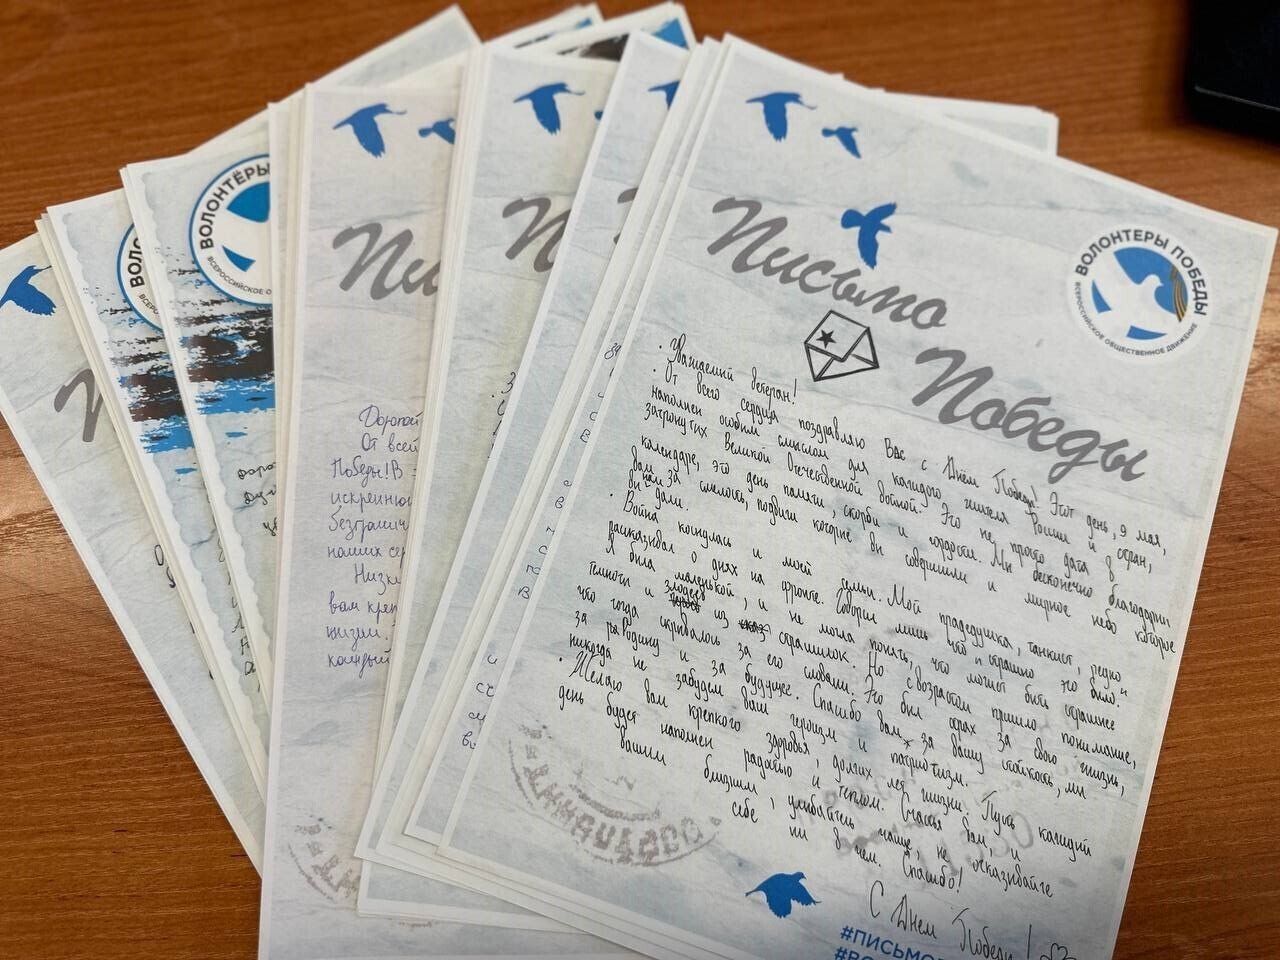 Письмо
Победы
ВОЛОНТЕРЫ ПОБЕДЫ
ВСЕРОССИЙСКОЕ ОБЩЕСТВЕННОЕ ДВИЖЕНИЕ
· Уважаемый ветеран!
· От всего сердца поздравляю Вас с Днём Победы! Этот день, 9 мая,
наполнен особым смыслом для каждого жителя России и стран,
затронутых Великой Отечественной войной. Это не просто дата в
календаре, это день памяти, скорби и гордости. Мы бесконечно благодарны
вам за смелость, подвиги которые вы совершили и мирное небо которое
вы нам дали.
· Война коснулась и моей семьи. Мой прадедушка, танкист, редко
рассказывал о днях на фронте. Говорил лишь, что страшно это было.
Я была маленькой, и не могла понять, что может быть страшнее
темноты и злодеев из страшилок. Но с возрастом пришло понимание,
что тогда скрывалось за его словами. Это был страх за свою жизнь,
за Родину и за будущее. Спасибо вам за вашу стойкость, мы
никогда не забудем ваш героизм и патриотизм.
· Желаю вам крепкого здоровья, долгих лет жизни. Пусть каждый
день будет наполнен радостью и теплом. Счастья Вам, и
вашим близким, улыбайтесь чаще, не отказывайте
себе ни в чем. Спасибо!
С Днем Победы!
#ПИСЬМО
Пи
Дорогой
От всей
Победы! В
искренню
безгранич
наших сер
Низк
вам креп
жизни.
каждый
П
ВОЛОНТЁРЫ
ВСЕРОССИЙСКОЕ О